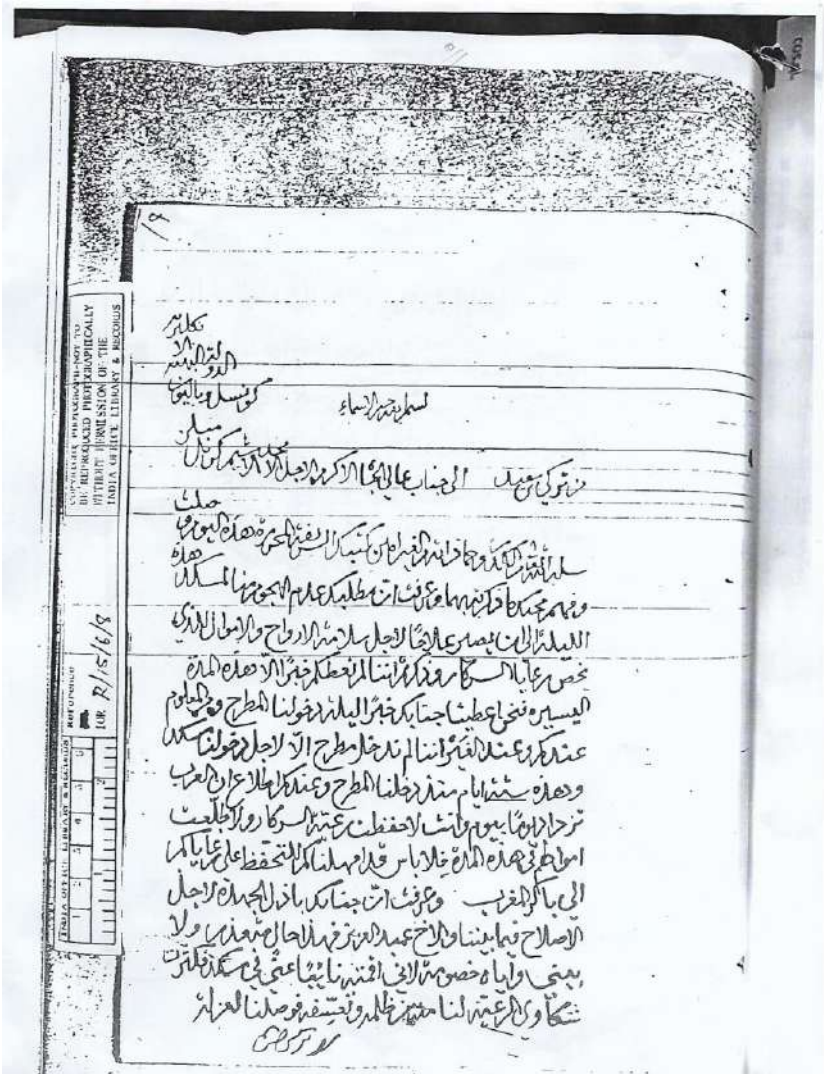 COPYRIGHT PHOTOGRAPH-NOT TO
BE REPRODUCED PHOTOGRAPHICALLY
WITHOUT PERMISSION OF THE
INDIA OFFICE LIBRARY & RECORDS
Reference
IOR R/15/6/8
INDIA OFFICE LIBRARY & RECORDS
الدولة البهية
كونسل وباليوز
من تركي بن سعيد الى جناب عالي الجاه الاكرم الاجل
سلمه الله تعالى
وفهم محبك ما ذكرته بهما وعرفت ان مطلبكم عدم الهجوم منا لمسكد هذه
الليلة الى ان يصير علاجا لاجل سلامة الارواح والاموال الذي
يخص رعايا السركار وذكرت اننا لم نعطكم خبرا الا هذه المدة
اليسيره فنحن اعطينا جنابكم خبر اليلة دخولنا المطرح ومن المعلوم
عندكم وعند الغير اننا لم ندخل مطرح الا لاجل دخولنا مسكد
وهذه ستة ايام منذ دخلنا المطرح وعندكم اطلاع ان العرب
تزداد يوما بيوم وانت لا حفظت رعية السركار ولا طلعت
اموالهم في هذه المدة فلا باس قد امهلناكم للتحفظ على رعاياكم
الى باكر المغرب وعرفت ان جنابك باذل الجهد لاجل
الاصلاح فيما بيننا والاخ عبد العزيز فهذا حال ولا
بيني واياه خصومة لاني اقمته نايبا عني في مسكد فكثرت
شكاوي الرعية لنا من ظلمه وتعسفه فوصلنا لعزله